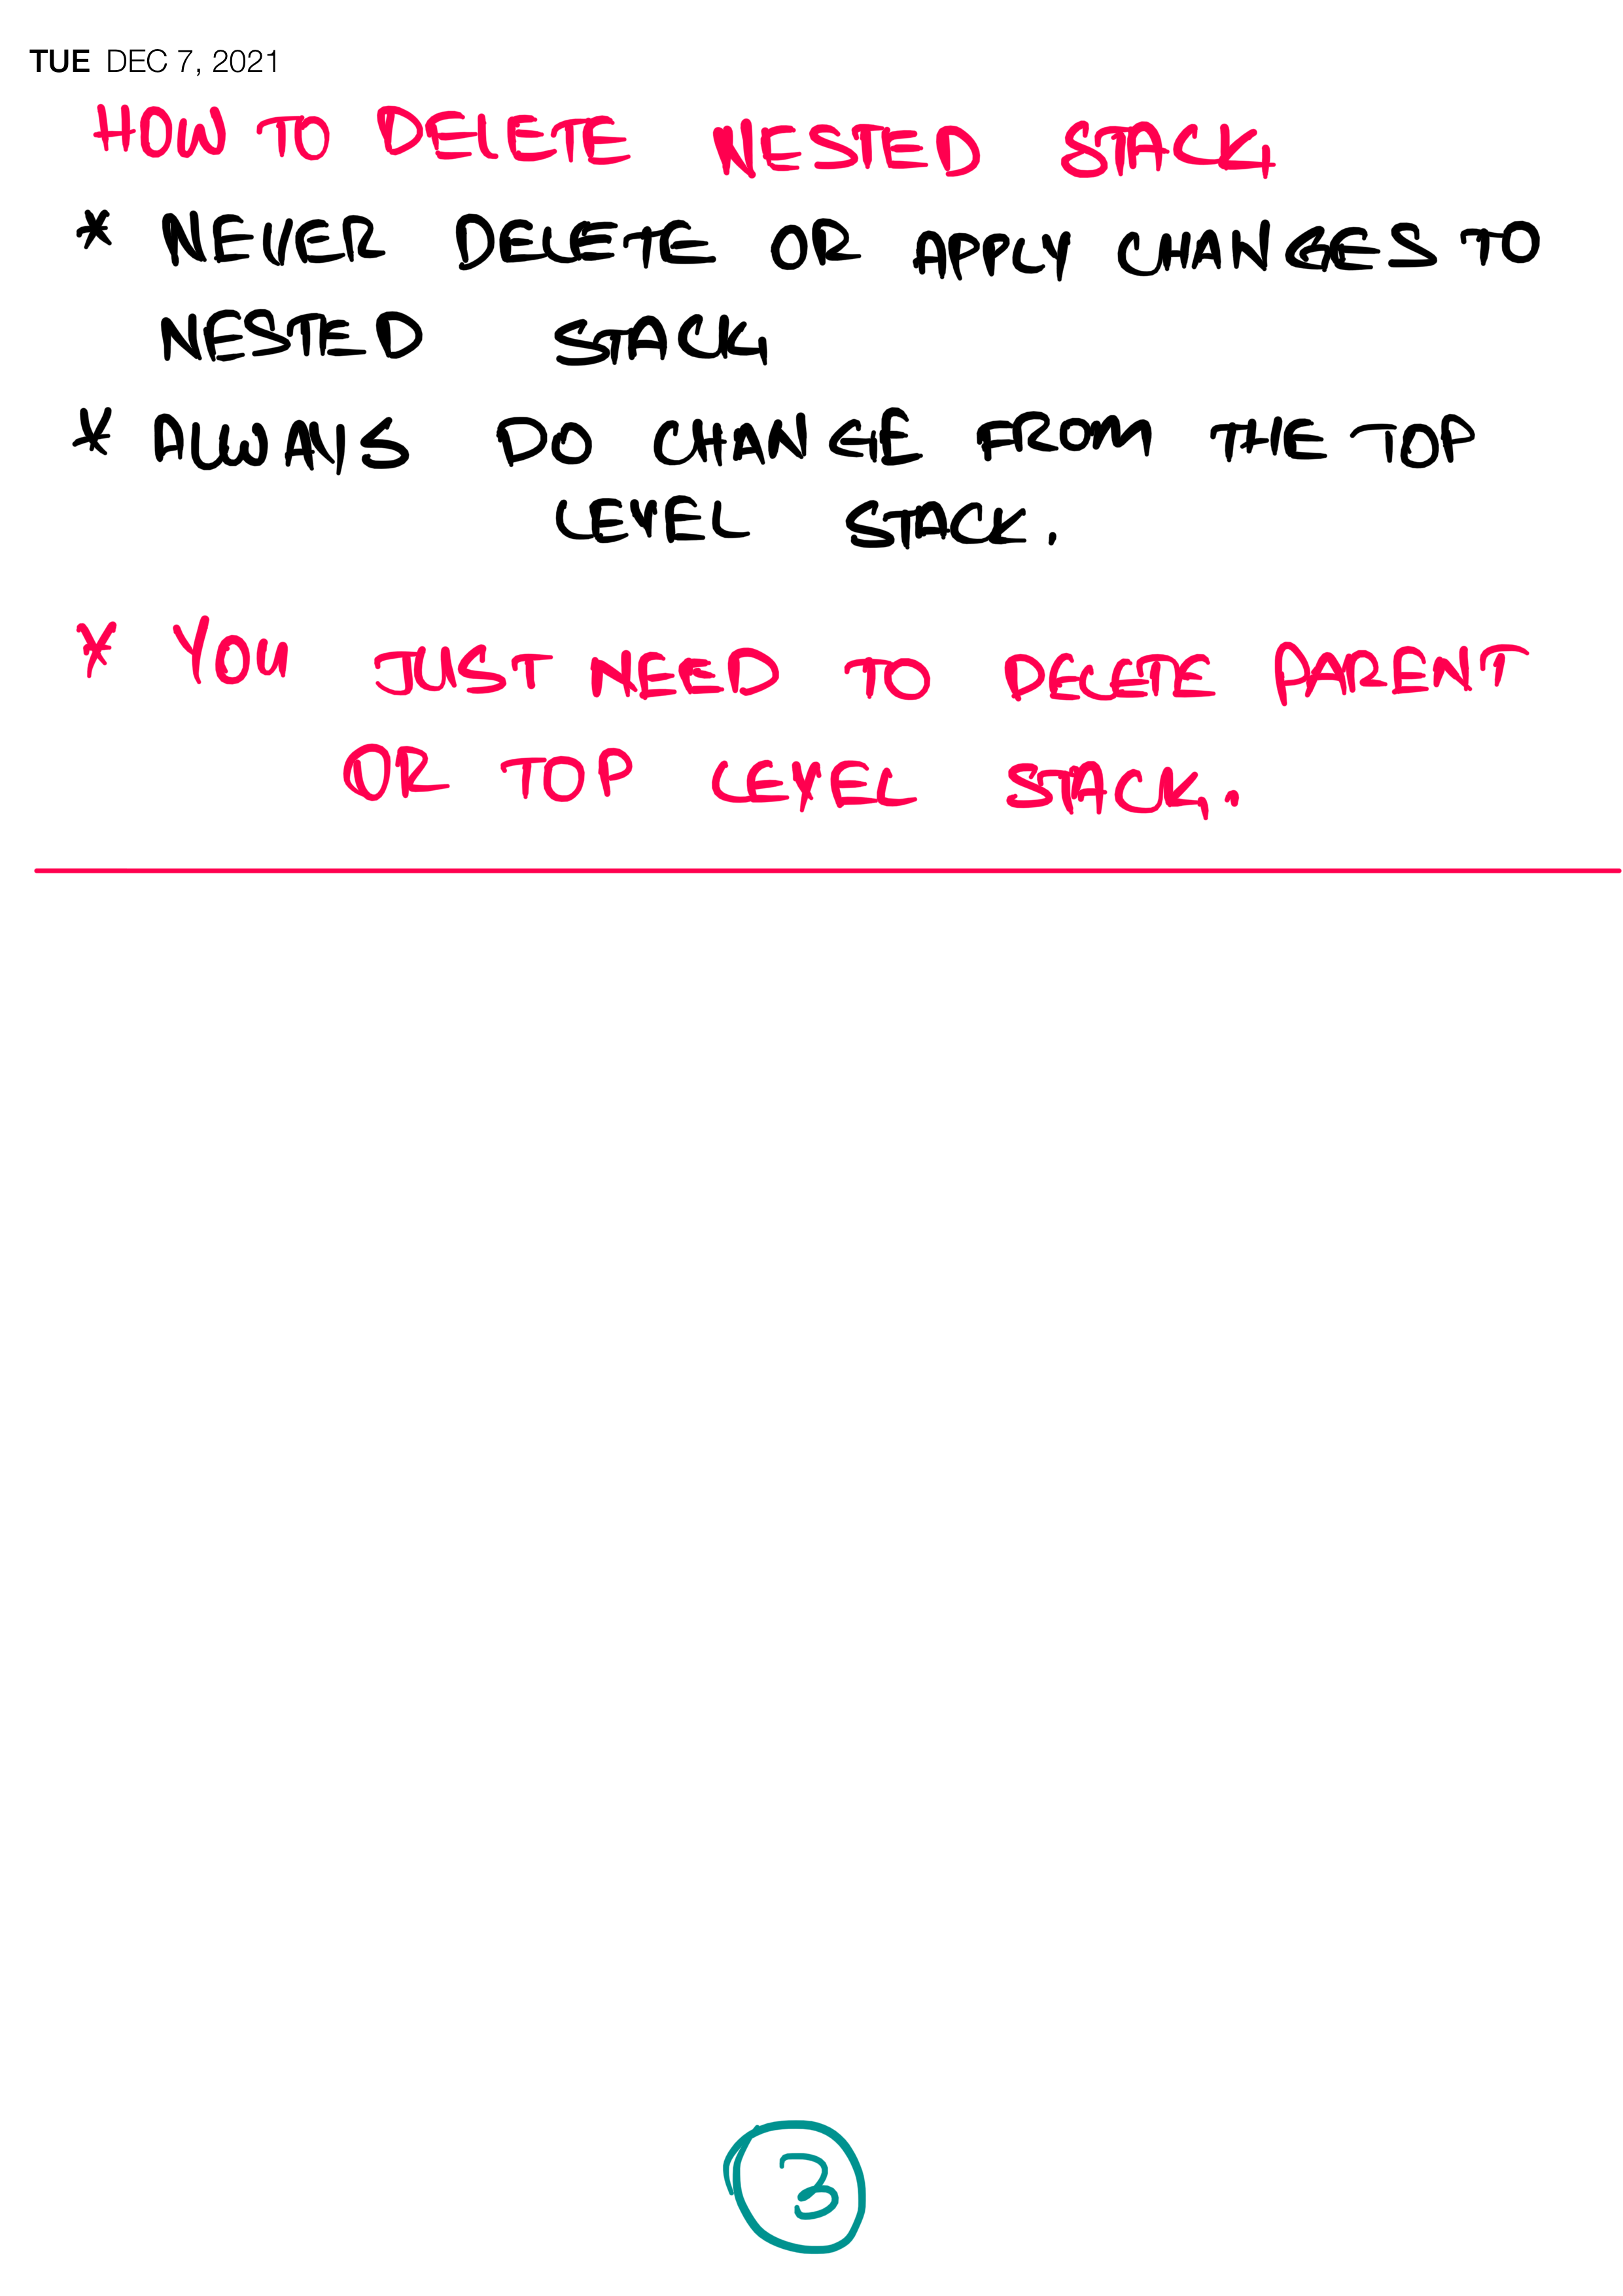 TUE DEC 7, 2021
HOW TO DELETE NESTED STACK
* NEVER DELETE OR APPLY CHANGES TO
NESTED STACK
* ALWAYS DO CHANGE FROM THE TOP
LEVEL STACK.
* YOU JUST NEED TO DELETE PARENT
OR TOP LEVEL STACK.
3